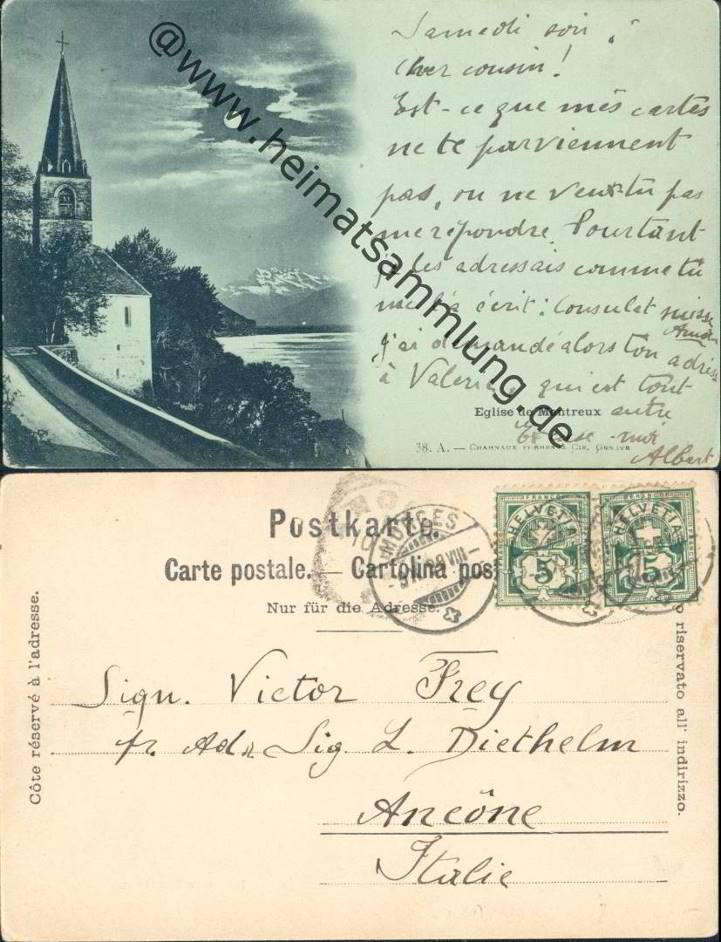 @www.heimatsammlung.de
Samedi soir,
Cher cousin!
Est-ce que mes cartes
ne te parviennent
pas, ou ne veux-tu pas
me répondre. Pourtant
je les adressais comme tu
me l'as écrit: Consulat suisse
J'ai demandé alors ton adresse
à Valérie, qui est tout
autre
Excuse-moi
Albert
Eglise de Montreux
38. A. — CHARNAUX FRÈRES & CIE, GENÈVE
Postkarte.
Carte postale. — Cartolina post
Nur für die Adresse.
MORGES
VIII
HELVETIA
5
HELVETIA
5
Côte réservé à l'adresse.
o riservato all' indirizzo.
Sign. Victor Frey
pr. Ad. Sig L. Diethelm
Ancône
Italie